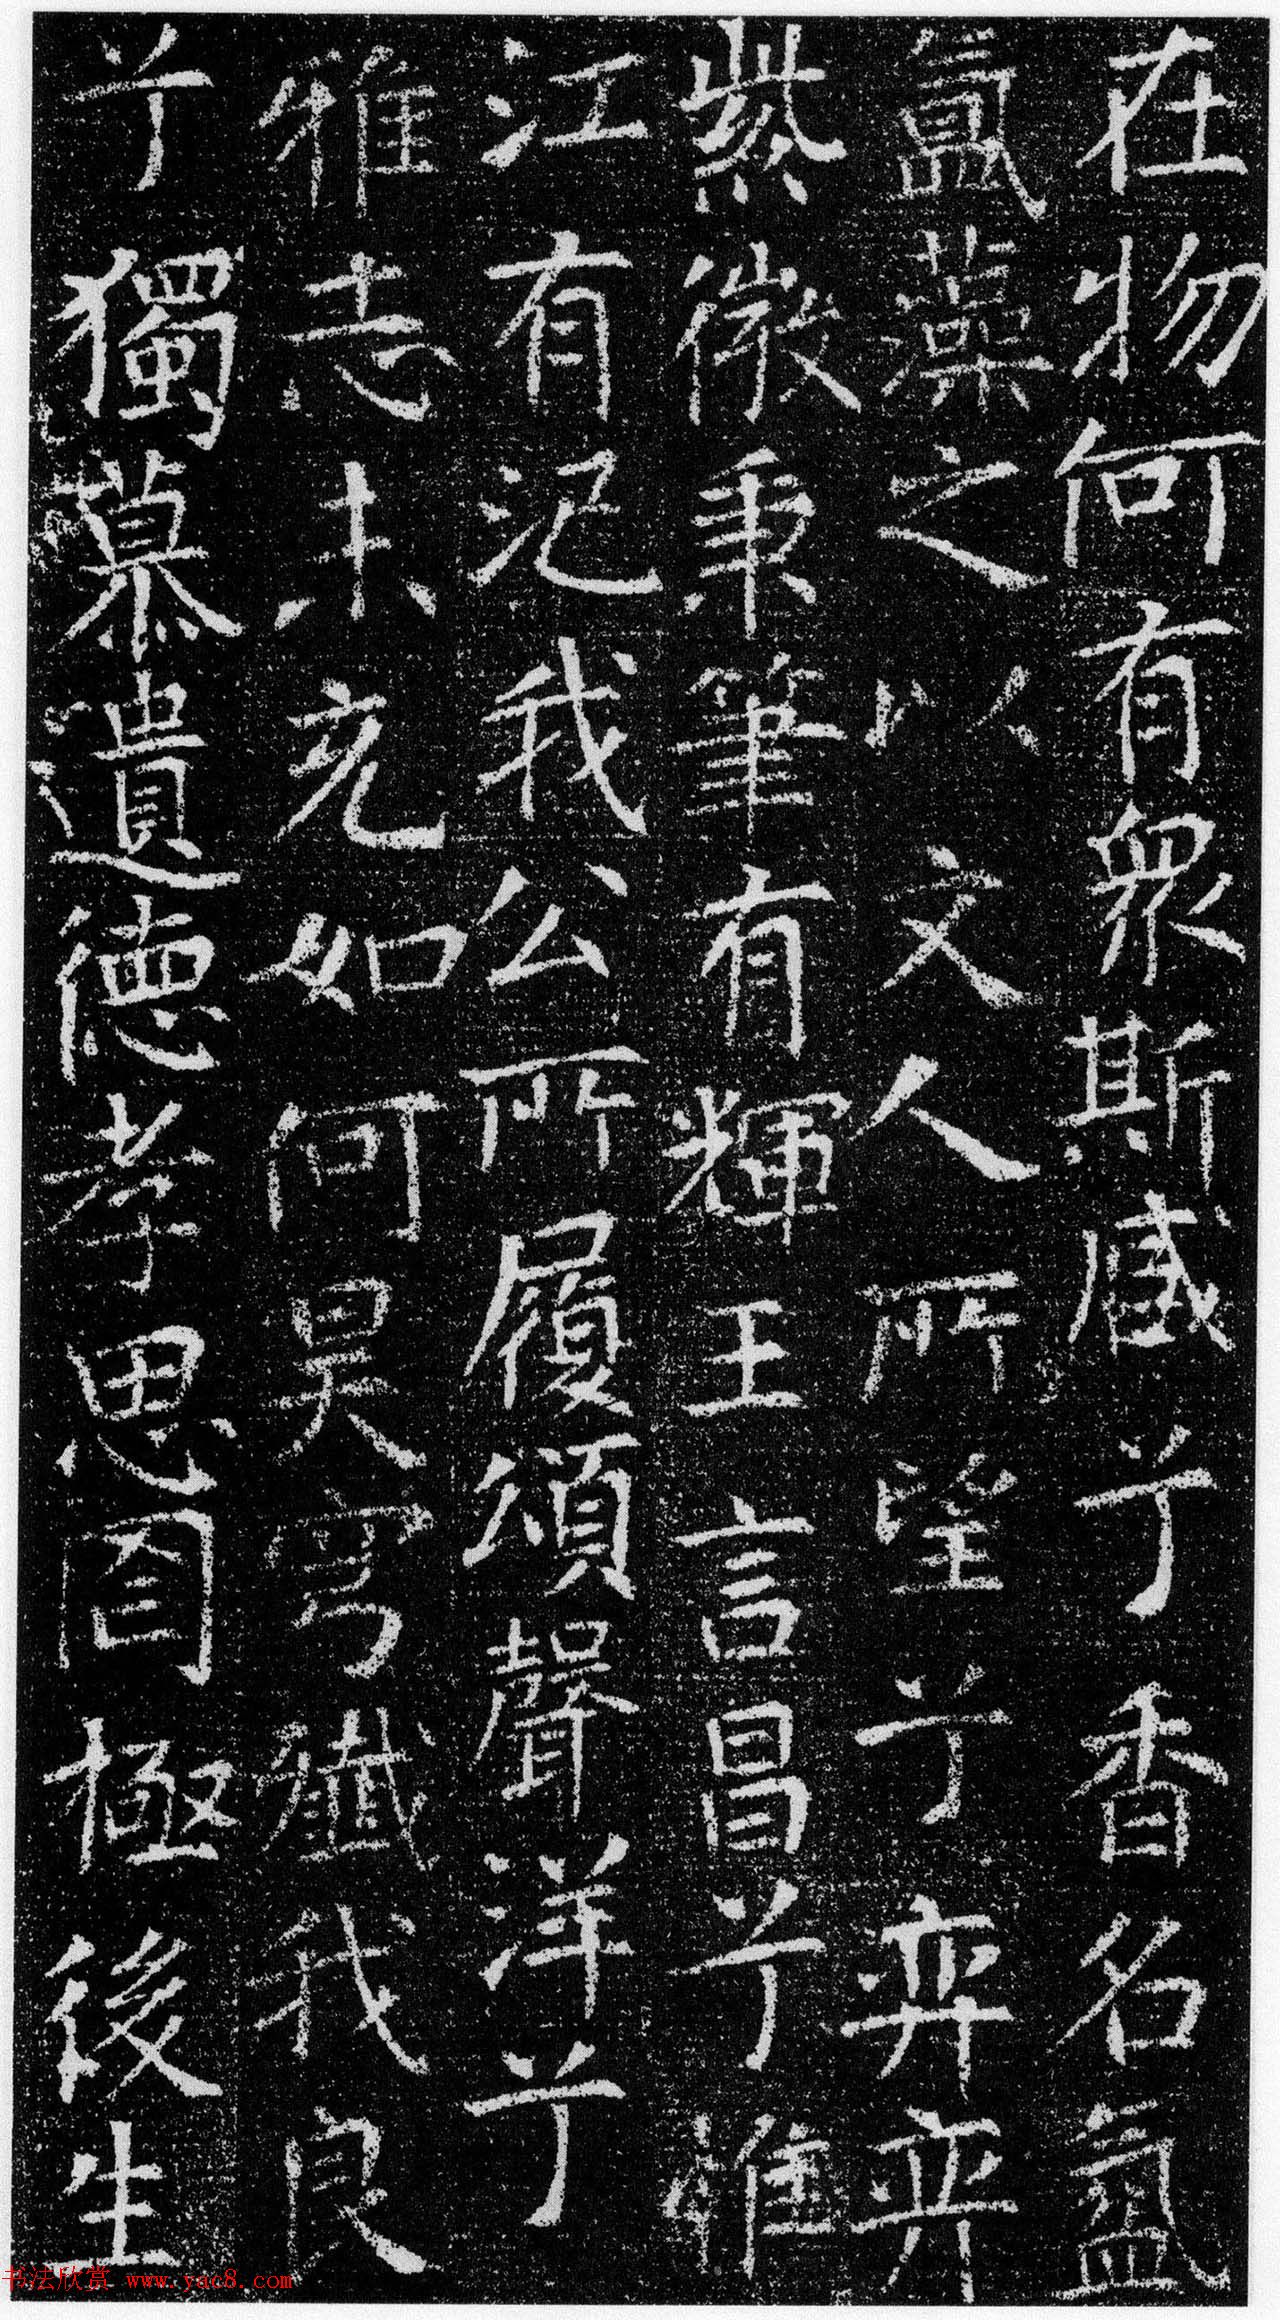 在物何有衆斯感兮香名氲
氲藻之以文人所望兮弈弈
紫微秉筆有輝王言昌兮惟
江有汜我公所履頌聲洋兮
雅志未充如何昊穹殲我良
兮獨慕遺德孝思罔極後生
书法欣赏 www.yac8.com